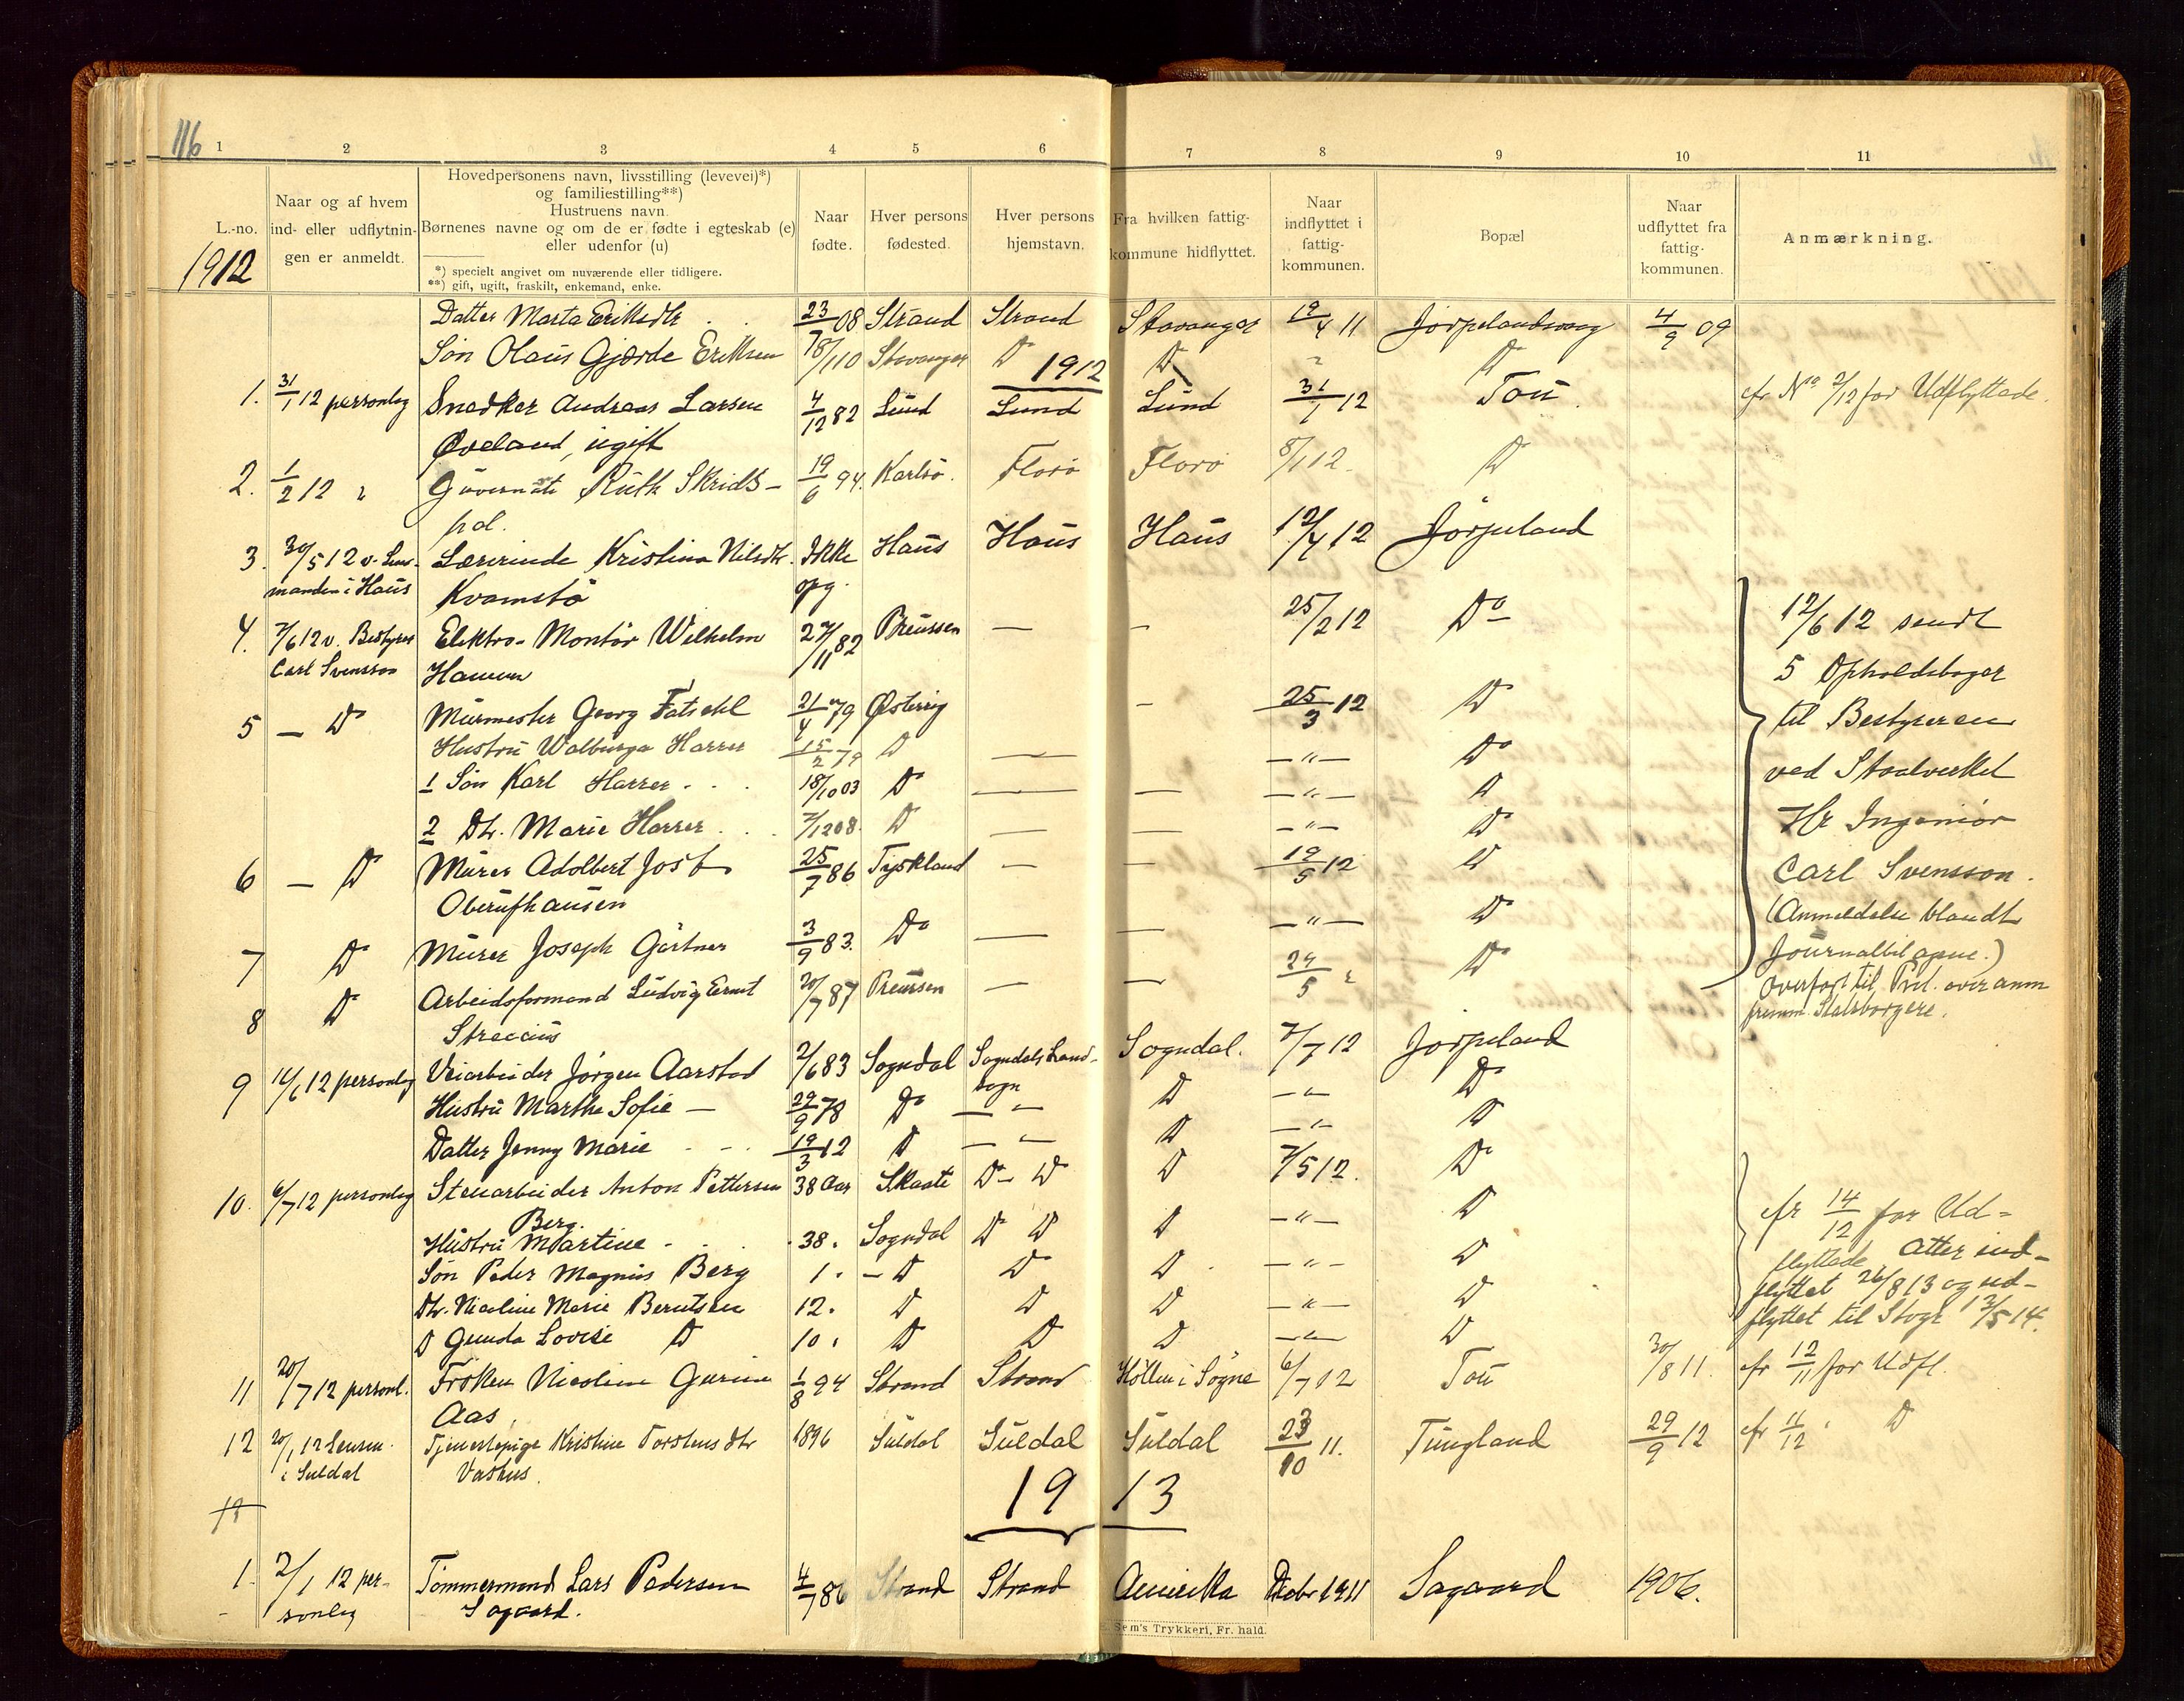 116
1 2 3 4 5 6 7 8 9 10 11
L.-no.
1912
Naar og af hvem ind- eller udflytnin- gen er anmeldt.
Hovedpersonens navn, livsstilling (levevei)*)
og familiestilling**)
Hustruens navn.
Børnenes navne og om de er fødte i egteskab (e)
eller udenfor (u)
*) specielt angivet om nuværende eller tidligere.
**) gift, ugift, fraskilt, enkemand, enke.
Naar fødte.
Hver persons fødested.
Hver persons hjemstavn.
Fra hvilken fattig- kommune hidflyttet.
Naar indflyttet i fattig- kommunen.
Bopæl
Naar udflyttet fra fattig- kommunen.
Anmærkning.
Datter Marta Eriksdtr 23/7 08 Strand Strand Stavanger 19/4 11 Jørpelandsvaag 4/9 09
Søn Olaus Gjærde Eriksen 18/1 10 Stavanger Do Do " Do
1912
1. 31/1 12 personleg Snedker Andreas Larsen 4/12 82 Lund Lund Lund 31/1 12 Tou cfr No 2/12 for Udflyttede.
Øveland, ugift
2. 1/2 12 " Guvernante Ruth Skrids- 19/6 94. Karlsø. Florø Florø 8/1 12. Do
pol.
3. 30/5 12 v. Lens- Lærerinde Kristina Nilsdtr. Ikke Haus Haus Haus 12/4 12 Jørpeland
manden i Haus Kvamstø opg.
4. 7/6 12 v. Bestyrer Elektro-Montør Wilhelm 27/11 82 Preussen — — 25/2 12 Do 12/6 12 sendt
Carl Svensson 5 Opholdsbøger
5 — Do Murmester Georg Fatschl 21/4 79 Østerrig - 25/3 12 Do til Bestyreren
Hustru Walburga Harrer 15/2 79 Do — — " — Do
1 Søn Karl Harrer 18/10 03 Do — — — " — Do ved Staalverket
2 Dtr. Marie Harrer 7/12 08. Do — — — " — Do Hr Ingeniør
6 — Do Murer Adolbert Jost 25/7 86 Tyskland — — 19/5 12 Do Carl Svensson.
Oberufhausen
7 Do Murer Joseph Gärtner 3/9 83. Do — — — " — Do (Anmeldelse blandt
Journalbilagene.)
8 Do Arbeidsformand Ludvig Ernst 20/7 87 Preussen — — 24/5 " Do Overført til Prot. over anm
Streccius fremm. Statsborgere.
9 14/6 12 personleg Veiarbeider Jørgen Aarstad 2/6 83 Sogndal Sogndals Land- Sogndal. 7/7 12 Jørpeland
sogn
Hustru Marthe Sofie — 29/9 78 Do — " — Do — " — Do
Datter Jenny Marie 19/3 12 Do — " — Do — " — Do
10. 6/7 12 personleg Stenarbeider Anton Pettersen 38 Aar Skaate Do — Do Do 7/5 12. Do
Berg.
Hustru Martine 38. Sogndal Do Do Do — " — Do cfr 14/12 for Ud-
Søn Peder Magnus Berg 1. — Do Do Do — " — Do flyttede Atter ind-
Dtr. Nicoline Marie Berntsen 12. Do Do Do — " — Do flyttet 26/8 13 og ud-
Do Gunda Lovise Do 10. Do Do Do — " — Do flyttet til Stvgr 13/5 14.
11 20/7 12 personl. Frøken Nicoline Gurine 1/8 94 Strand Strand Høllen i Søgne 6/7 12 Tou 30/8 11. cfr 12/11 for Udfl.
Aas,
12 20/1 12 Lensm. Tjenestepige Kristine Torstensdtr 1896 Suldal Suldal Suldal 23/10 11. Tungland 29/9 12 cfr 11/12 " Do
i Suldal Vashus.
1913
1. 2/1 12 per- Tømmermand Lars Pedersen 4/7 86 Strand Strand Amerika Decbr 1911 Sagaard 1906.
sonleg Sagaard.
Sem's Trykkeri, Fr. hald.